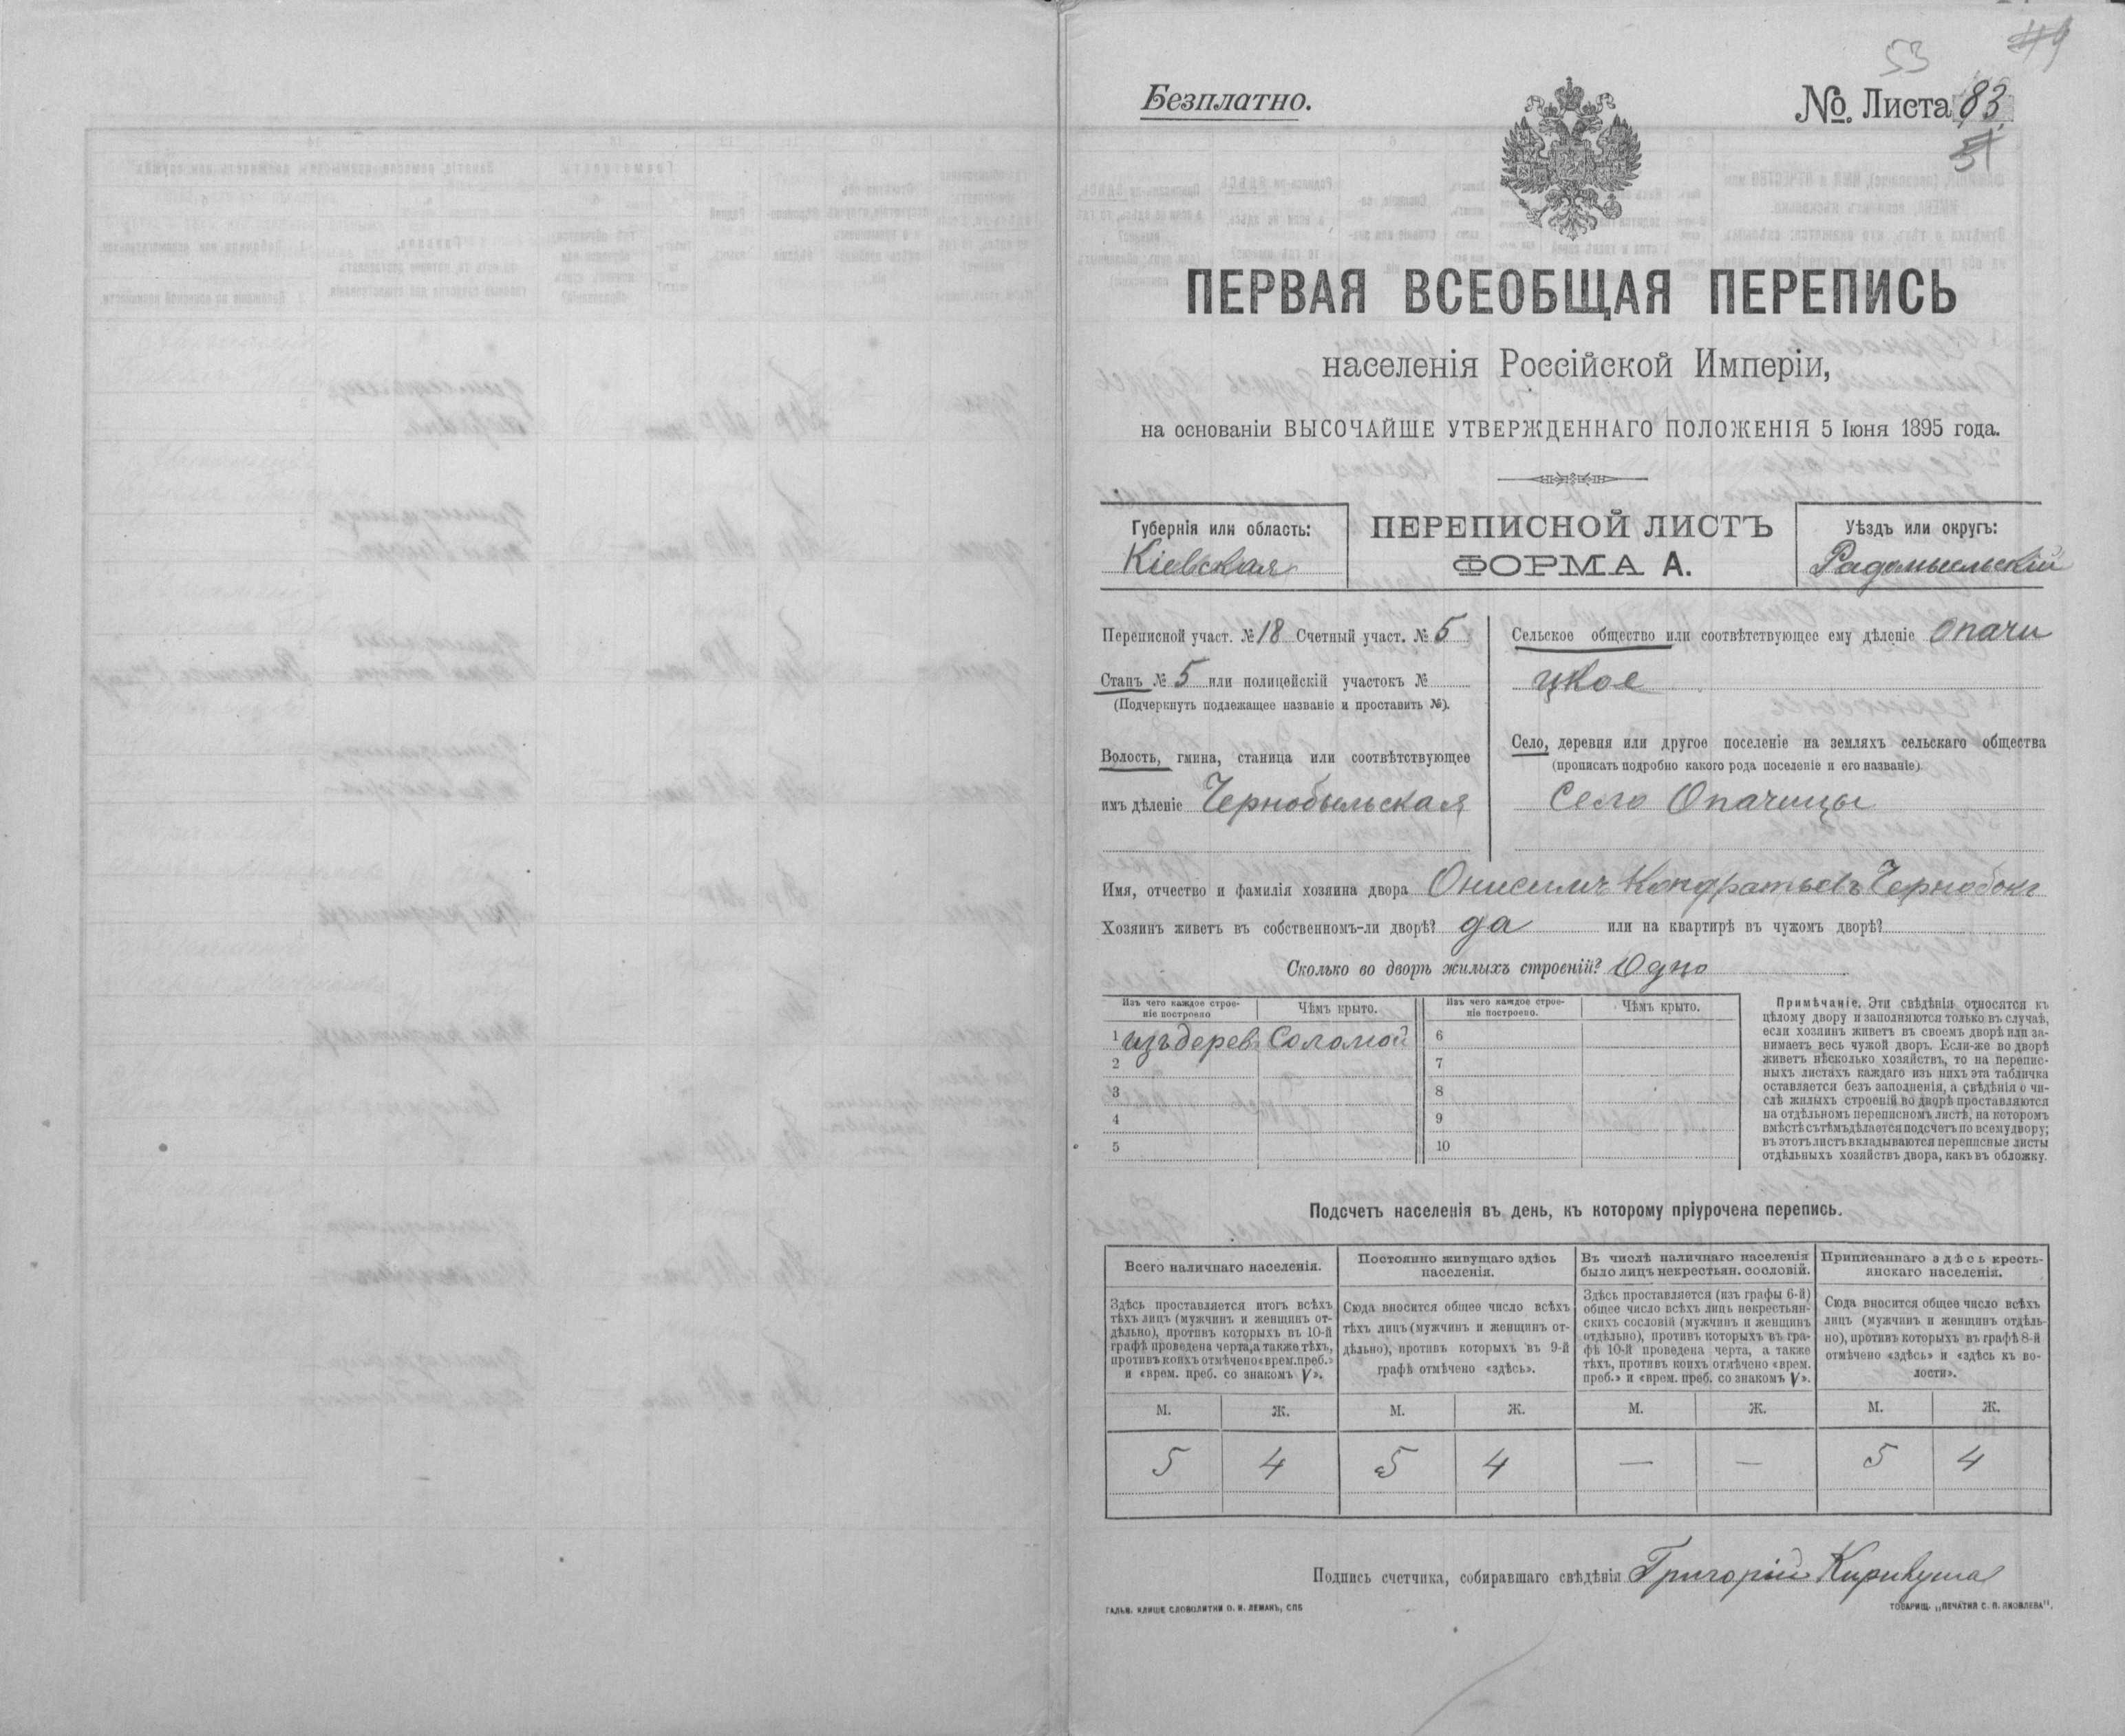 49
53
Безплатно.
№. Листа 83.
51
ПЕРВАЯ ВСЕОБЩАЯ ПЕРЕПИСЬ
населенія Россійской Имперіи,
на основаніи ВЫСОЧАЙШЕ УТВЕРЖДЕННАГО ПОЛОЖЕНІЯ 5 Іюня 1895 года.
Губернія или область:
Кіевская
ПЕРЕПИСНОЙ ЛИСТЪ
ФОРМА А.
Уѣздъ или округъ:
Радомысльскій
Переписной участ. № 18 Счетный участ. № 5
Станъ № 5 или полицейскій участокъ №
(Подчеркнуть подлежащее названіе и проставить №).
Волость, гмина, станица или соотвѣтствующее
имъ дѣленіе Чернобыльская
Сельское общество или соотвѣтствующее ему дѣленіе Опачи
цкое
Село, деревня или другое поселеніе на земляхъ сельскаго общества
(прописать подробно какого рода поселеніе и его названіе)
Село Опачицы
Имя, отчество и фамилія хозяина двора Онисимъ Кондратьевъ Чернобокъ
Хозяинъ живетъ въ собственномъ-ли дворѣ? да или на квартирѣ въ чужомъ дворѣ?
Сколько во дворѣ жилыхъ строеній? Одно
Изъ чего каждое строе-
ніе построено
Чѣмъ крыто.
1 изъ дерев. Соломой
2
3
4
5
Изъ чего каждое строе-
ніе построено.
Чѣмъ крыто.
6
7
8
9
10
Примѣчаніе. Эти свѣдѣнія относятся къ
цѣлому двору и заполняются только въ случаѣ,
если хозяинъ живетъ въ своемъ дворѣ или за-
нимаетъ весь чужой дворъ. Если-же во дворѣ
живетъ нѣсколько хозяйствъ, то на перепис-
ныхъ листахъ каждаго изъ нихъ эта табличка
оставляется безъ заполненія, а свѣдѣнія о чи-
слѣ жилыхъ строеній во дворѣ проставляются
на отдѣльномъ переписномъ листѣ, на которомъ
вмѣстѣ съ тѣмъ дѣлается подсчетъ по всему двору;
въ этотъ листъ вкладываются переписные листы
отдѣльныхъ хозяйствъ двора, какъ въ обложку.
Подсчетъ населенія въ день, къ которому пріурочена перепись.
Всего наличнаго населенія.
Здѣсь проставляется итогъ всѣхъ
тѣхъ лицъ (мужчинъ и женщинъ от-
дѣльно), противъ которыхъ въ 10-й
графѣ проведена черта, а также тѣхъ,
противъ коихъ отмѣчено «врем. преб.»
и «врем. преб. со знакомъ V».
Постоянно живущаго здѣсь
населенія.
Сюда вносится общее число всѣхъ
тѣхъ лицъ (мужчинъ и женщинъ от-
дѣльно), противъ которыхъ въ 9-й
графѣ отмѣчено «здѣсь».
Въ числѣ наличнаго населенія
было лицъ некрестьян. сословій.
Здѣсь проставляется (изъ графы 6-й)
общее число всѣхъ лицъ некрестьян-
скихъ сословій (мужчинъ и женщинъ
отдѣльно), противъ которыхъ въ гра-
фѣ 10-й проведена черта, а также
тѣхъ, противъ коихъ отмѣчено «врем.
преб.» и «врем. преб. со знакомъ V».
Приписаннаго здѣсь кресть-
янскаго населенія.
Сюда вносится общее число всѣхъ
лицъ (мужчинъ и женщинъ отдѣль-
но), противъ которыхъ въ графѣ 8-й
отмѣчено «здѣсь» и «здѣсь къ во-
лости».
М. Ж. М. Ж. М. Ж. М. Ж.
5 4 5 4 — — 5 4
Подпись счетчика, собиравшаго свѣдѣнія Григорій
ГАЛЬВ. КЛИШЕ СЛОВОЛИТНИ О. И. ЛЕМАНЪ, СПБ
ТОВАРИЩ. „ПЕЧАТНЯ С. П. ЯКОВЛЕВА“.